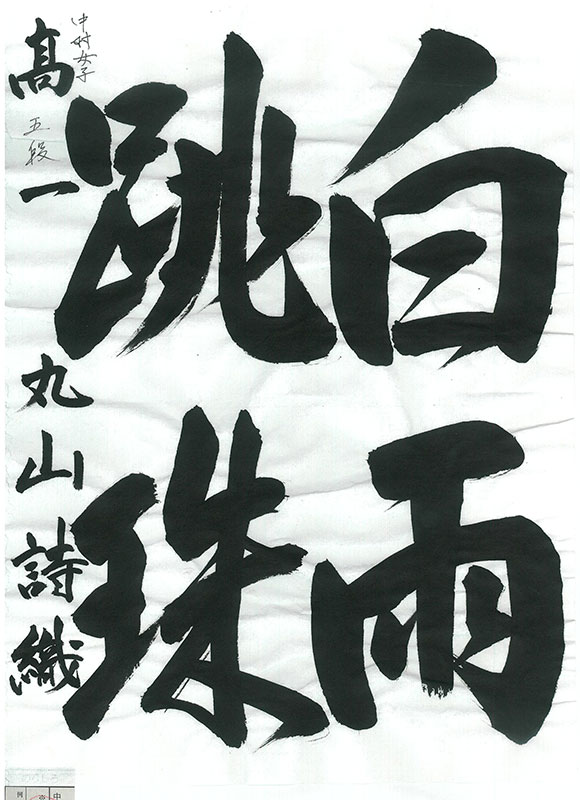 白雨
跳珠
高一 丸山詩織
中村女子
五段